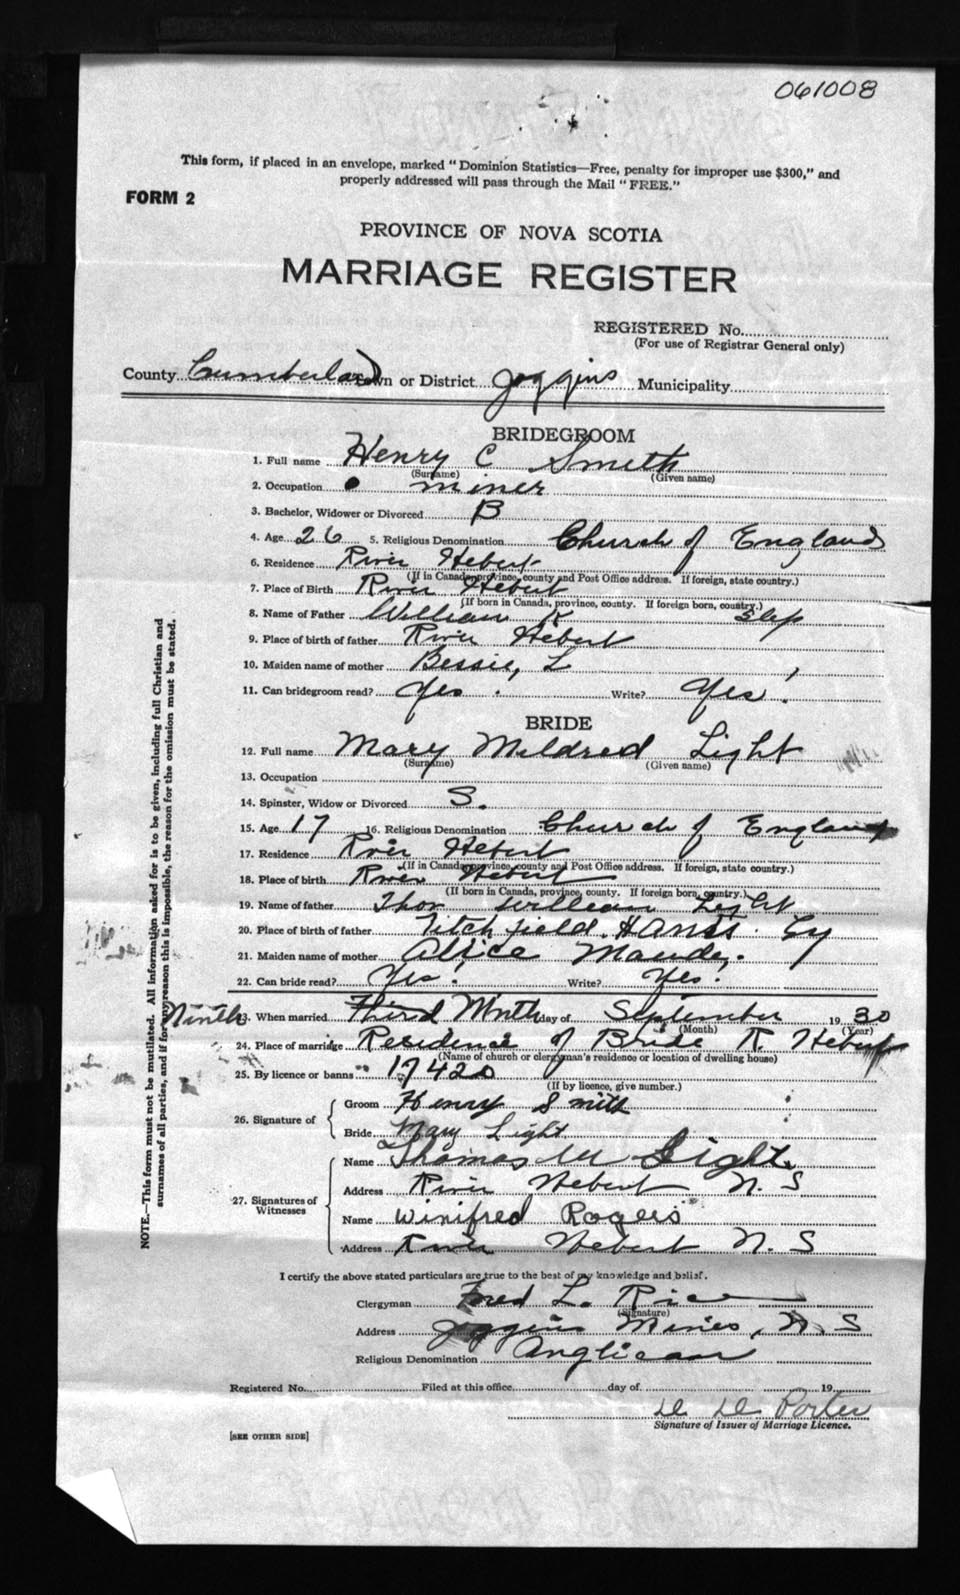 061008
This form, if placed in an envelope, marked "Dominion Statistics—Free, penalty for improper use $300," and
properly addressed will pass through the Mail "FREE."
FORM 2
PROVINCE OF NOVA SCOTIA
MARRIAGE REGISTER
REGISTERED No.
(For use of Registrar General only)
County Cumberland Town or District Joggins Municipality
BRIDEGROOM
1. Full name Henry C Smith
(Surname) (Given name)
2. Occupation miner
3. Bachelor, Widower or Divorced B
4. Age 26 5. Religious Denomination Church of England
6. Residence River Hebert
(If in Canada, province, county and Post Office address. If foreign, state country.)
7. Place of Birth River Hebert
(If born in Canada, province, county. If foreign born, country.)
8. Name of Father William K
9. Place of birth of father River Hebert
10. Maiden name of mother Bessie, L
11. Can bridegroom read? Yes. Write? Yes!
BRIDE
12. Full name Mary Mildred Light
(Surname) (Given name)
13. Occupation
14. Spinster, Widow or Divorced S.
15. Age 17 16. Religious Denomination Church of England
17. Residence River Hebert
(If in Canada, province, county and Post Office address. If foreign, state country.)
18. Place of birth River Hebert
(If born in Canada, province, county. If foreign born, country.)
19. Name of father Thos William Light
20. Place of birth of father Titchfield. Hants.
21. Maiden name of mother Alice Maude.
22. Can bride read? Yes! Write? Yes!
Ninth 23. When married Third Ninth day of September 1930
(Month) (Year)
24. Place of marriage Residence of Bride R. Hebert
(Name of church or clergyman's residence or location of dwelling house)
25. By licence or banns 17420
(If by licence, give number.)
26. Signature of
Groom Henry Smith
Bride Mary Light
27. Signatures of Witnesses
Name Thomas W Light
Address River Hebert N. S
Name Winifred Rogers
Address River Hebert N. S
I certify the above stated particulars are true to the best of my knowledge and belief.
Clergyman Fred L. Rice
(Signature)
Address Joggins Mines, N. S
Religious Denomination Anglican
Registered No. Filed at this office day of 19
Porter
Signature of Issuer of Marriage Licence.
[SEE OTHER SIDE]
NOTE.—This form must not be mutilated. All information asked for is to be given, including full Christian and
surnames of all parties, and if for any reason this is impossible, the reason for the omission must be stated.